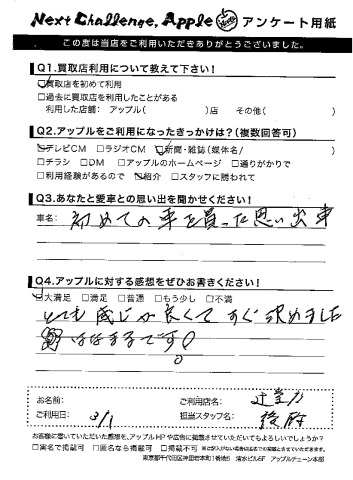 Next Challenge, Apple アンケート用紙
この度は当店をご利用いただきありがとうございました。
Q1.買取店利用について教えて下さい！
☑買取店を初めて利用
□過去に買取店を利用したことがある
利用した店舗： アップル( )店 その他( )
Q2.アップルをご利用になったきっかけは？(複数回答可)
☑テレビCM □ラジオCM ☑新聞・雑誌(媒体名/ )
□チラシ □DM □アップルのホームページ □通りがかりで
□利用経験があるので ☑紹介 □スタッフに誘われて
Q3.あなたと愛車との思い出を聞かせください！
車名： 初めての車を買った思い出車
Q4.アップルに対する感想をぜひお書きください！
☑大満足 □満足 □普通 □もう少し □不満
とても感じが良くてすぐ決めました
はなまるです!
お名前： ご利用店名： 辻堂
ご利用日： 3/1 担当スタッフ名： 後府
お客様に書いていただいた感想を、アップルHPや広告に掲載させていただいてもよろしいでしょうか？
□実名で掲載可 □匿名なら掲載可 □掲載不可 ※ご記入がない場合は匿名での掲載とさせていただきます。
東京都千代田区神田岩本町1番地5 清水ビル5F アップルチェーン本部